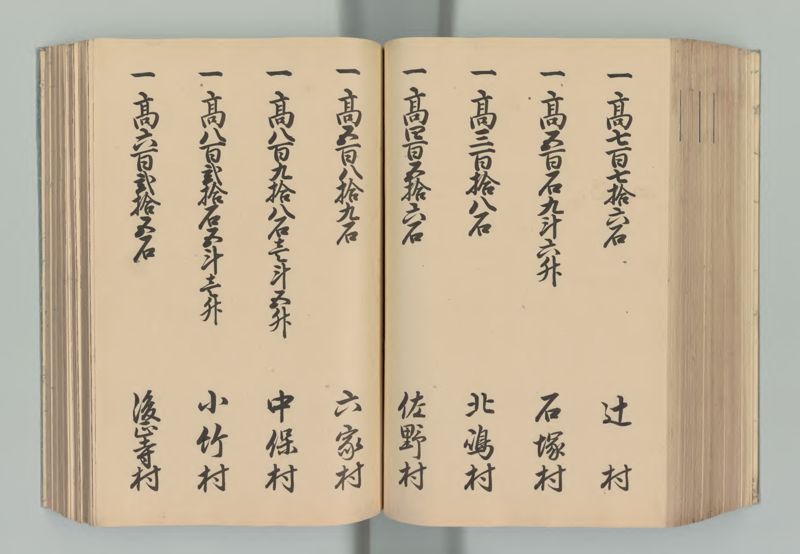 一 高七百七拾六石 辻村
一 高五百石九斗六升 石塚村
一 高三百拾八石 北嶋村
一 高四百五拾六石 佐野村
一 高五百八拾九石 六家村
一 高八百九拾八石壱斗五升 中保村
一 高八百弐拾石五斗壱升 小竹村
一 高六百弐拾五石 後正寺村